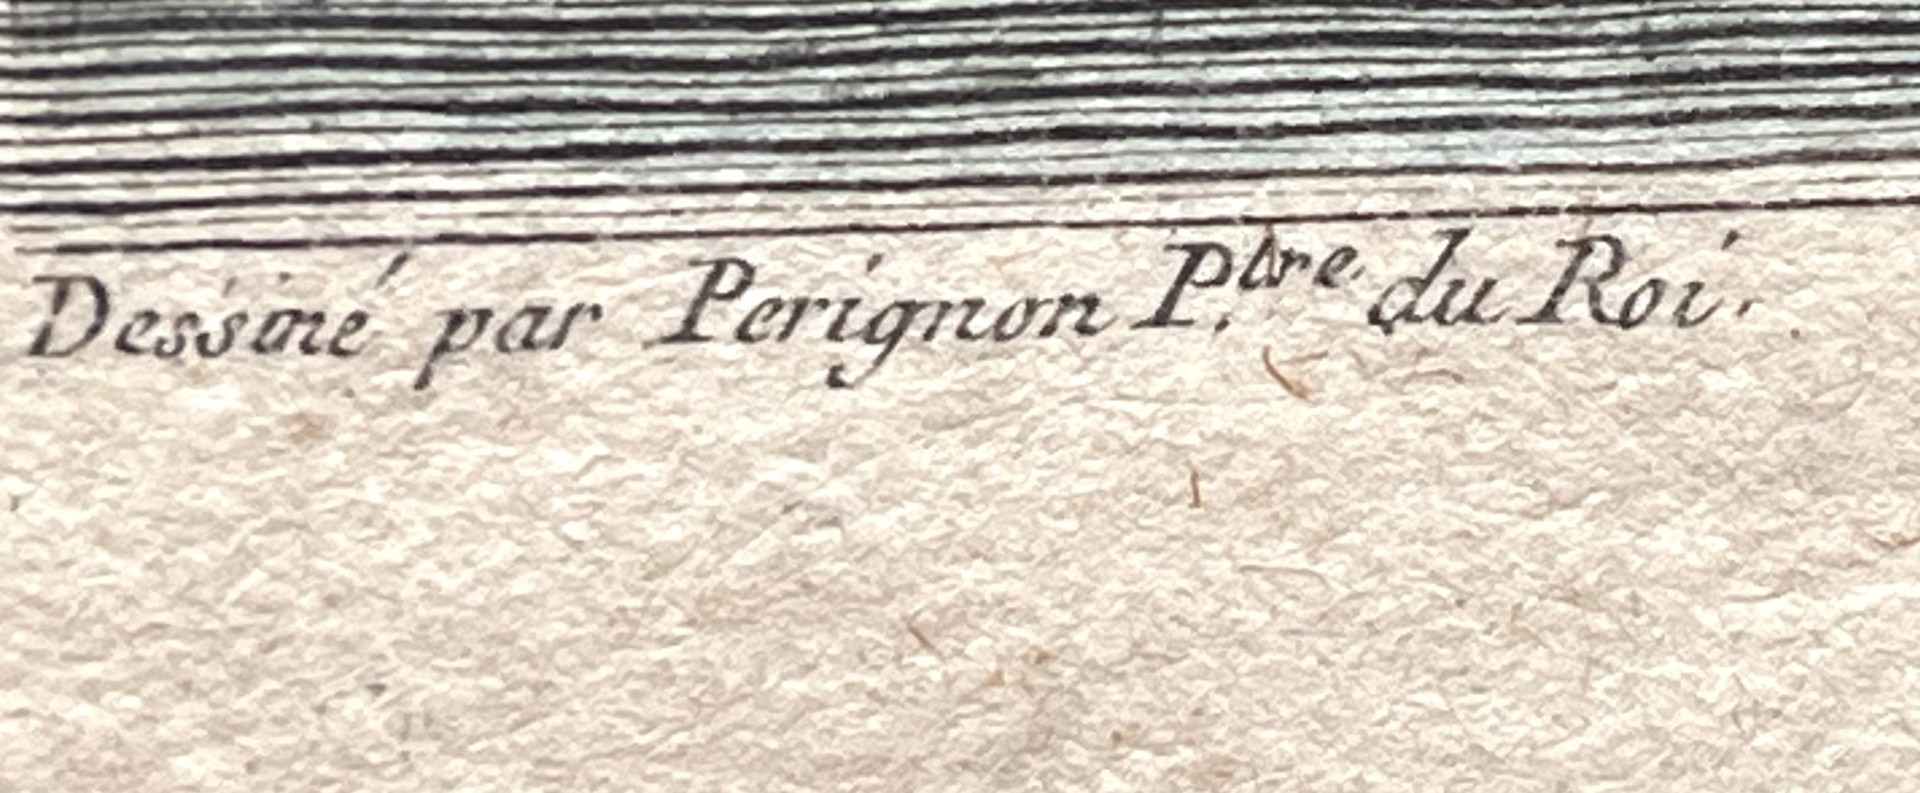 Dessiné par Perignon P.tre du Roi.